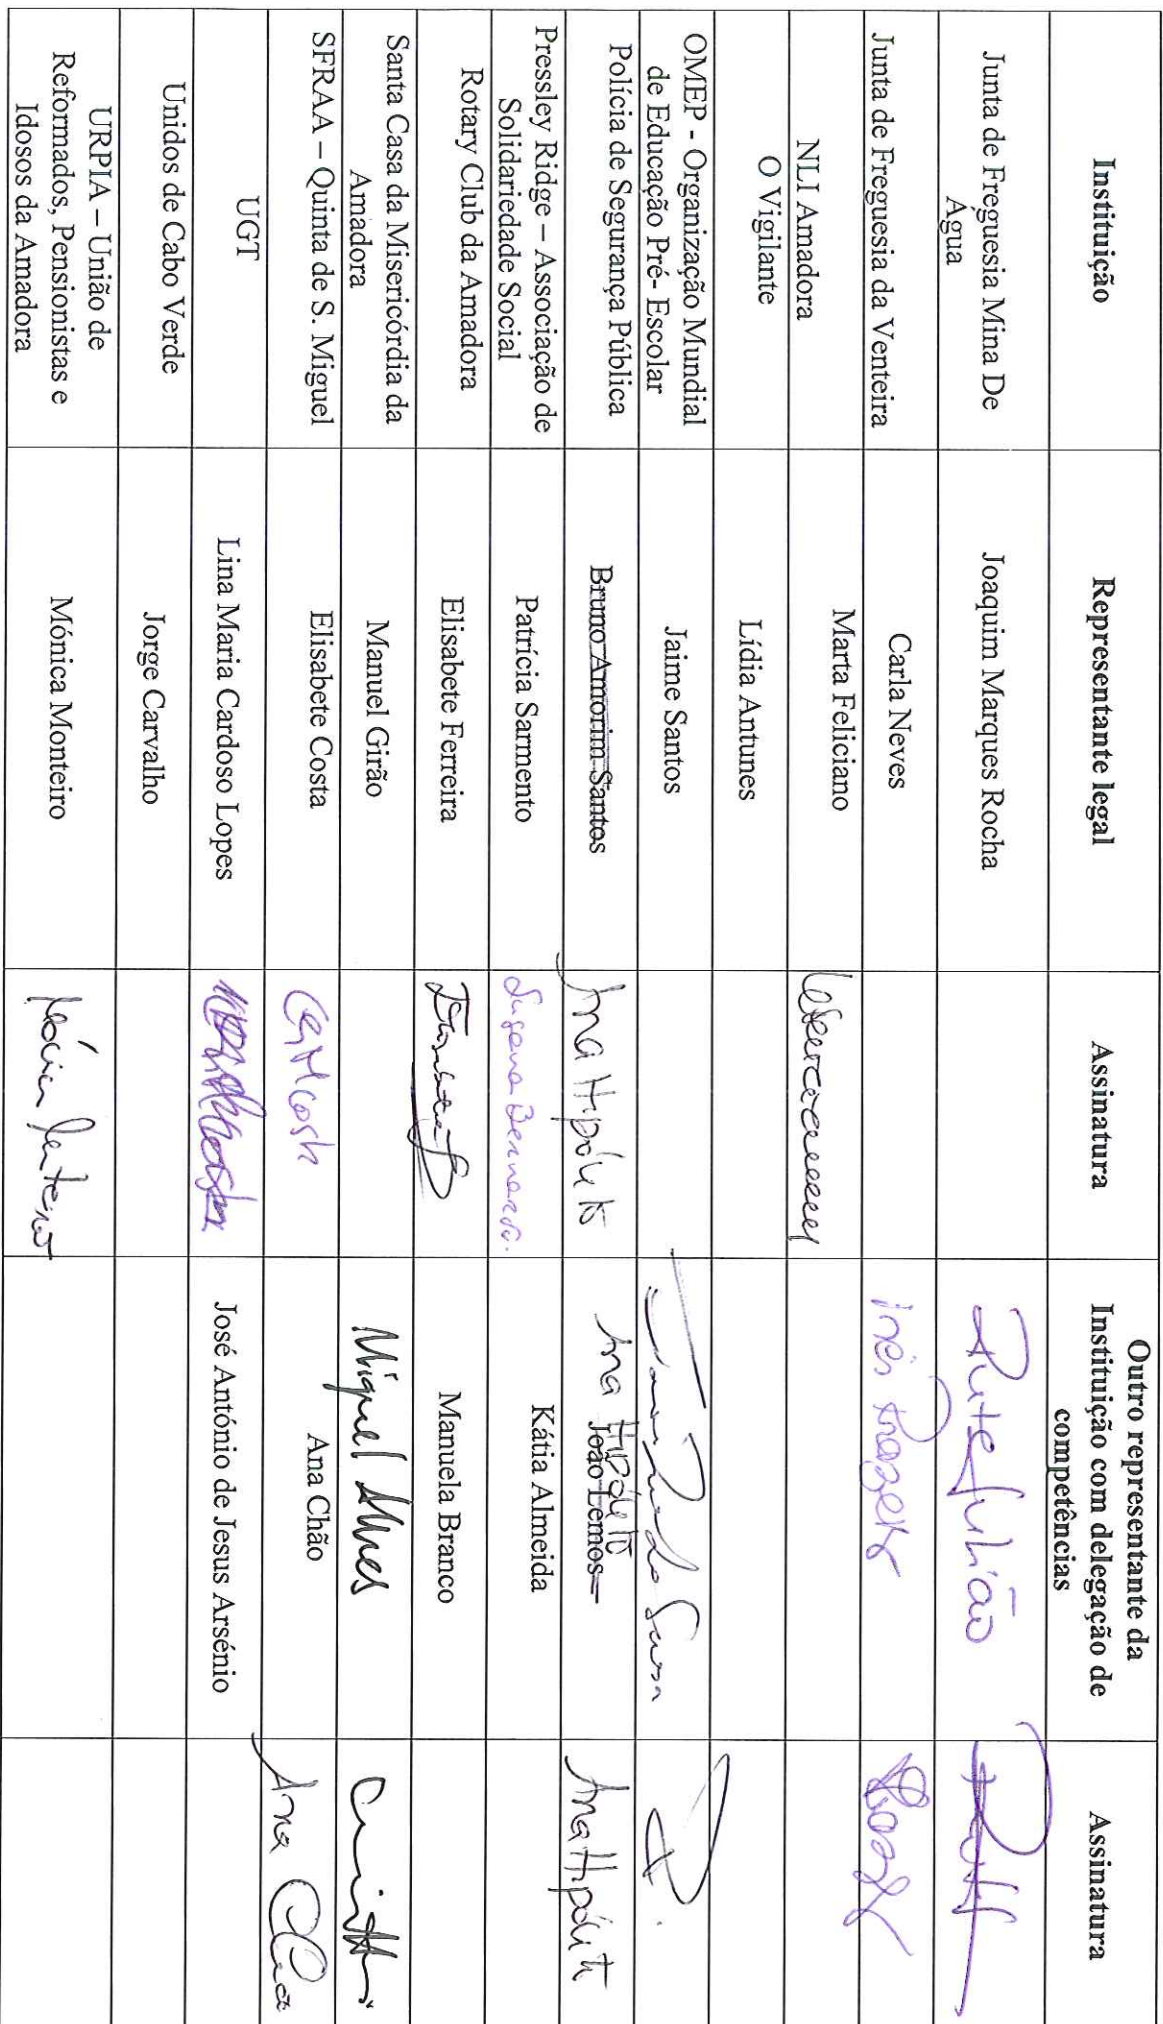 Instituição
Representante legal
Assinatura
Outro representante da
Instituição com delegação de
competências
Assinatura
Junta de Freguesia Mina De
Água
Joaquim Marques Rocha
Rute Julião
Junta de Freguesia da Venteira
Carla Neves
Inês Prazeres
NLI Amadora
Marta Feliciano
O Vigilante
Lídia Antunes
OMEP - Organização Mundial
de Educação Pré- Escolar
Jaime Santos
Polícia de Segurança Pública
Bruno Amorim Santos
Ana Hipólito
Ana Hipólito
João Lemos
Ana Hipólito
Pressley Ridge – Associação de
Solidariedade Social
Patrícia Sarmento
Susana Bernardo.
Kátia Almeida
Rotary Club da Amadora
Elisabete Ferreira
Manuela Branco
Santa Casa da Misericórdia da
Amadora
Manuel Girão
Miguel Alves
SFRAA – Quinta de S. Miguel
Elisabete Costa
Ana Chão
Ana Chão
UGT
Lina Maria Cardoso Lopes
José António de Jesus Arsénio
Unidos de Cabo Verde
Jorge Carvalho
URPIA – União de
Reformados, Pensionistas e
Idosos da Amadora
Mónica Monteiro
Mónica Monteiro